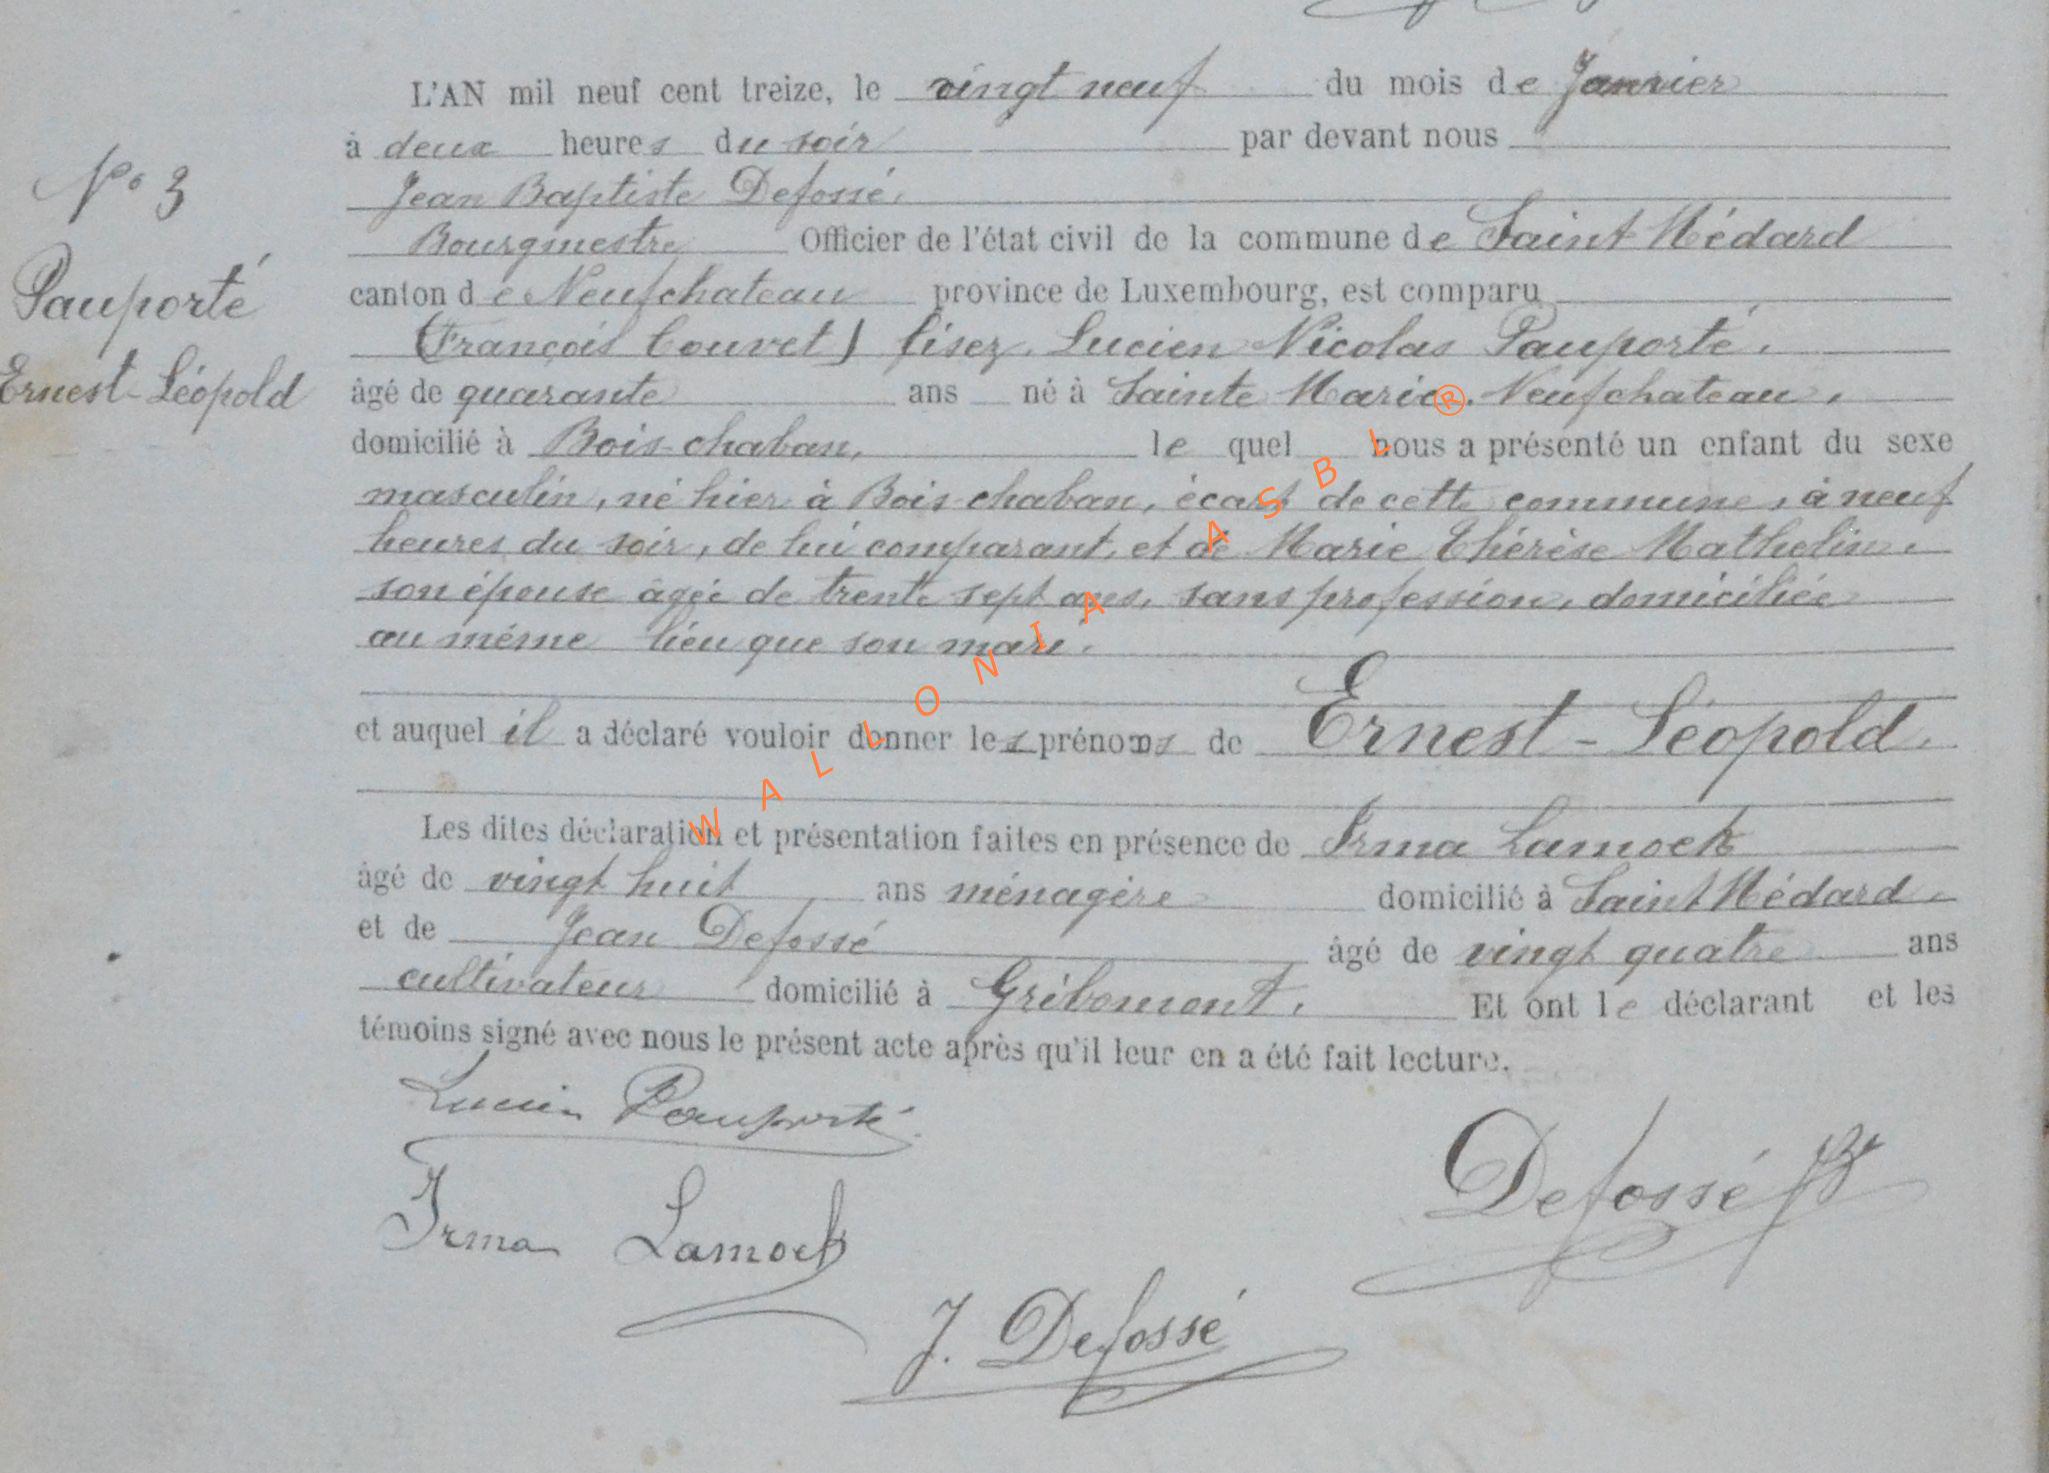 L'AN mil neuf cent treize, le vingt neuf du mois de Janvier
à deux heures du soir par devant nous
Jean Baptiste Defossé,
Bourgmestre Officier de l'état civil de la commune de Saint Médard
canton de Neufchateau province de Luxembourg, est comparu
(François Couvet) lisez, Lucien Nicolas Pauporté,
âgé de quarante ans né à Sainte Marie. Neufchateau,
domicilié à Bois-chaban, lequel nous a présenté un enfant du sexe
masculin, né hier à Bois-chaban, écart de cette commune, à neuf
heures du soir, de lui comparant, et de Marie Thérèse Mathelin,
son épouse âgée de trente sept ans, sans profession, domiciliée
au même lieu que son mari.
et auquel il a déclaré vouloir donner les prénoms de Ernest-Léopold.
Les dites déclaration et présentation faites en présence de Irma Lamock
âgé de vingt huit ans ménagère domicilié à Saint Médard,
et de Jean Defossé âgé de vingt quatre ans
cultivateur domicilié à Gribomont. Et ont le déclarant et les
témoins signé avec nous le présent acte après qu'il leur en a été fait lecture.
N° 3
Pauporté
Ernest-Léopold
Lucien Pauporté
Irma Lamock
J. Defossé
Defossé JB
WALLONIA ASBL ®